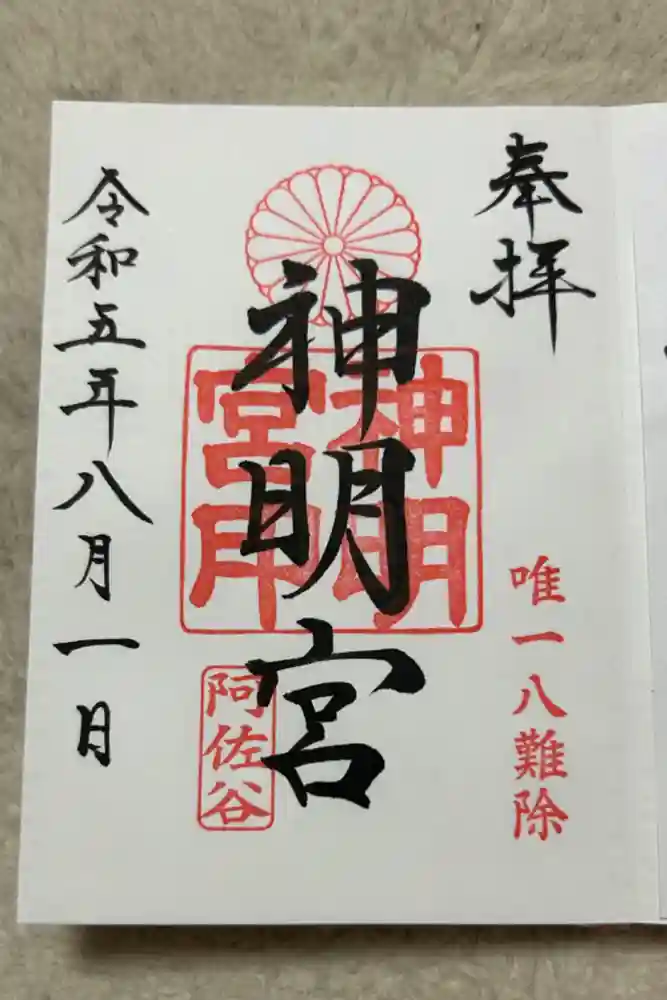 奉拝
唯一八難除
神明宮
神明
宮印
阿佐谷
令和五年八月一日